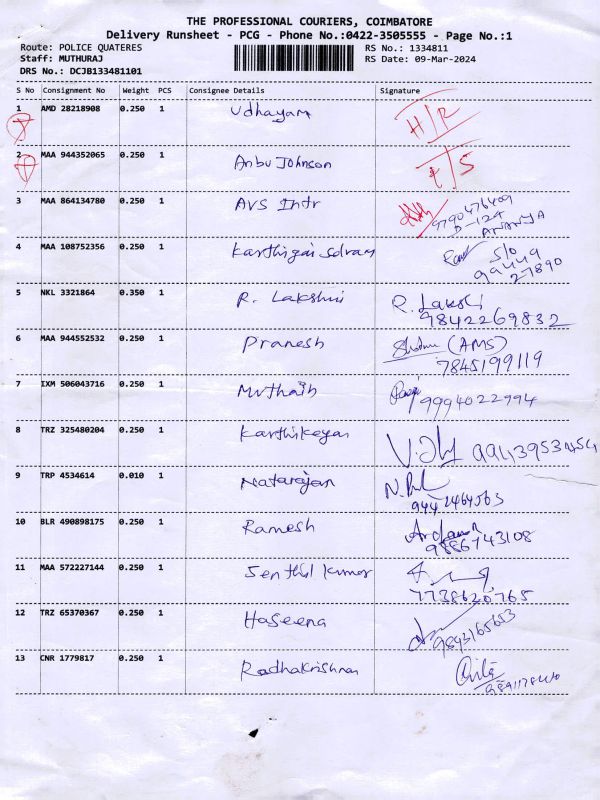 THE PROFESSIONAL COURIERS, COIMBATORE
Delivery Runsheet - PCG - Phone No.:0422-3505555 - Page No.:1
Route: POLICE QUATERES RS No.: 1334811
Staff: MUTHURAJ RS Date: 09-Mar-2024
DRS No.: DCJB133481101
S No Consignment No Weight PCS Consignee Details Signature
1 AMD 28218908 0.250 1 Udhayam H/R
2 MAA 944352065 0.250 1 Anbu Johnson
3 MAA 864134780 0.250 1 AVS Intr
9790476409
D-124
ANANYA
4 MAA 108752356 0.250 1 S/O
99449
27890
5 NKL 3321864 0.350 1 R. Lakshmi R. Laksi
9842269832
6 MAA 944552532 0.250 1 Pranesh (AMS)
7845199119
7 IXM 506043716 0.250 1 Muthaih
9994022994
8 TRZ 325480204 0.250 1 Karthikeyan
9 TRP 4534614 0.010 1 Natarajan
9442464563
10 BLR 490898175 0.250 1 Ramesh
9886743108
11 MAA 572227144 0.250 1 Senthil Kumar
7738620765
12 TRZ 65370367 0.250 1 Haseena
9843165653
13 CNR 1779817 0.250 1 Radhakrishnan